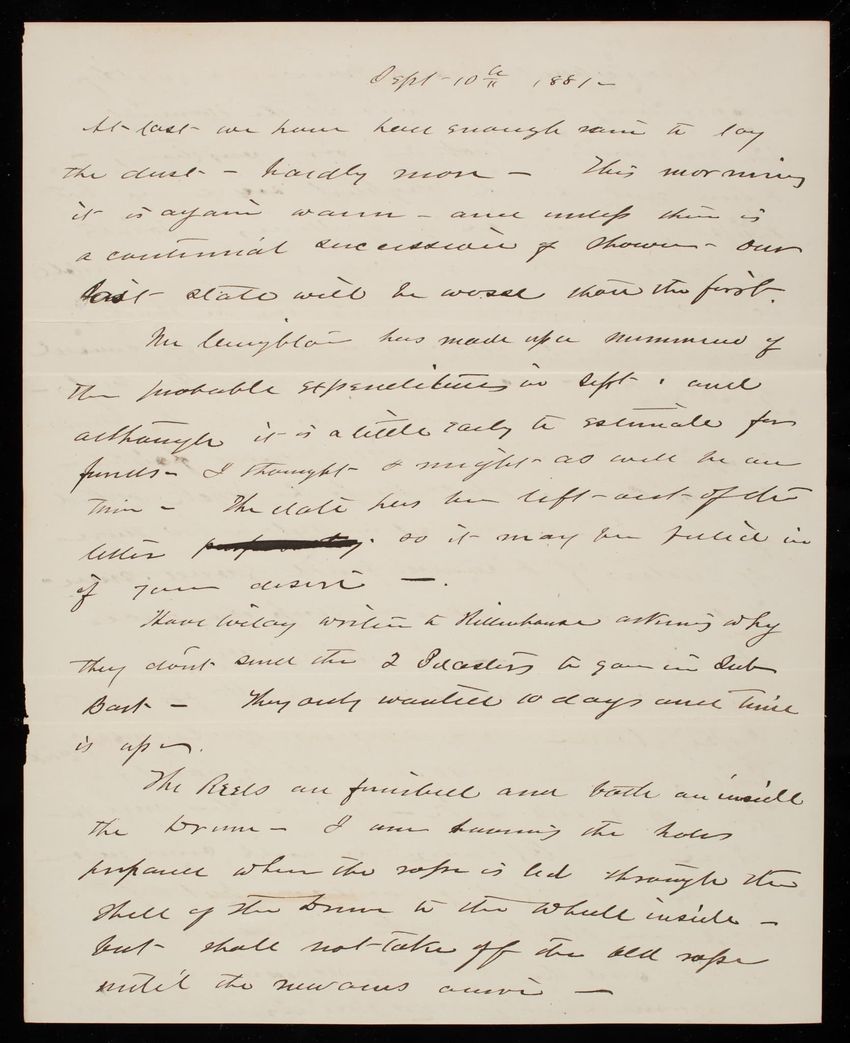 Sept 10th 1881-
At last we have had enough rain to lay
the dust - hardly more - This morning
it is again warm - and unless there is
a continual succession of showers - our
last state will be worse than the first.
Mr has made up a of
the probable expenditures in Sept. and
although it is a little early to estimate for
funds - I thought I might as well be on
time - The date has been left out of the
letter so it may be filled in
if you desire -.
Have written to Hillenhouse asking why
they don't send the 2 to go in Sub
Bast - They only wanted 10 days and time
is up.
The Reels are finished and both are inside
the Drum - I am having the holes
prepared where the rope is led through the
shell of the Drum to the wheel inside -
but shall not take off the old rope
until the new ones arrive -